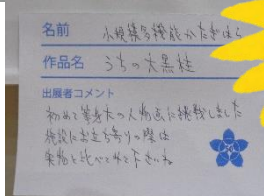 名前 小規模多機能かたぎはら
作品名 うちの大黒柱
出展者コメント
初めて等身大の人物画に挑戦しました
施設にお立ち寄りの際は
実物と比べてみて下さいね